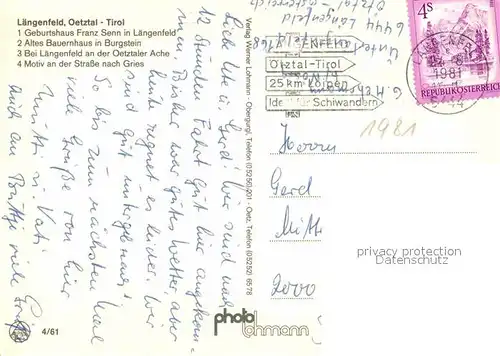 Längenfeld, Oetztal - Tirol
1 Geburtshaus Franz Senn in Längenfeld
2 Altes Bauernhaus in Burgstein
3 Bei Längenfeld an der Oetztaler Ache
4 Motiv an der Straße nach Gries
Lieb Uta u. Gerd! Wir sind nach
12 Stunden Fahrt gut hier angekom-
men. Bisher war gutes Wetter, aber
heute regnet es leider. Wir
sind gut untergebracht.
So bis zum nächsten Mal
viele Grüße von hier
Mutti u. Vati
Auch am viele Grüße
4/61
Verlag Werner Lohmann - Obergurgl, Telefon (05256) 201 - Oetz, Telefon (05252) 6578
photo
lohmann
6444 Längenfeld
Ötztal Österreich
LÄNGENFELD
Ötztal-Tirol
25 km Loipen
Ideal für Schiwandern
1981
6444
4S
REPUBLIK ÖSTERREICH
1981
Herrn
Gerd
2000
privacy protection